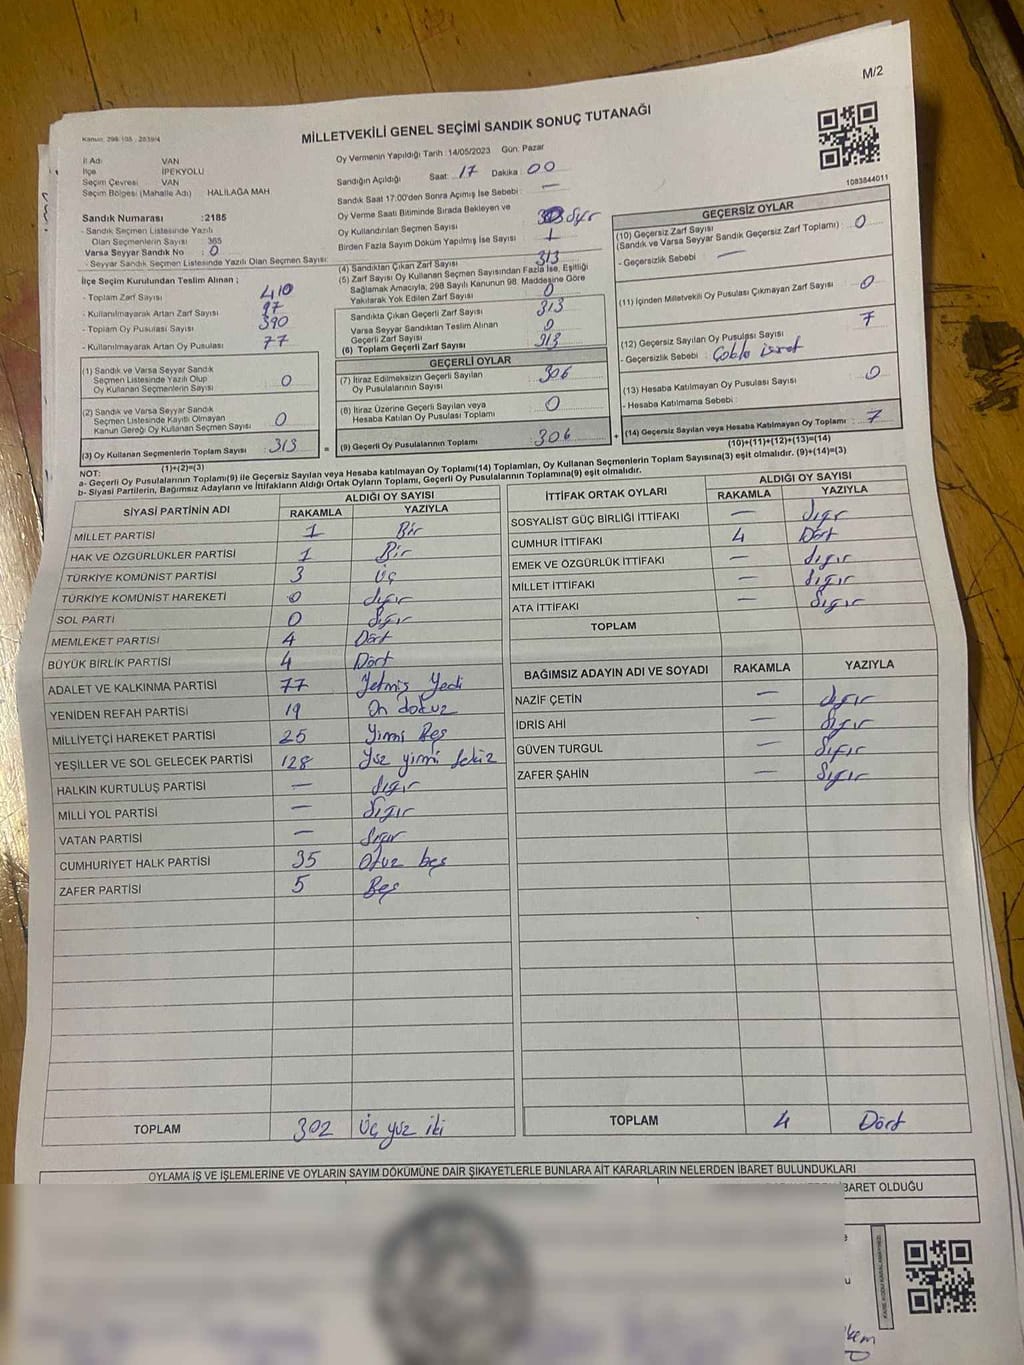 M/2
Kanun: 298/105 , 2839/4
MİLLETVEKİLİ GENEL SEÇİMİ SANDIK SONUÇ TUTANAĞI
İl Adı VAN
İlçe İPEKYOLU
Seçim Çevresi VAN
Seçim Bölgesi (Mahalle Adı) HALİLAĞA MAH
Sandık Numarası :2185
- Sandık Seçmen Listesinde Yazılı
Olan Seçmenlerin Sayısı 365
Varsa Seyyar Sandık No : 0
- Seyyar Sandık Seçmen Listesinde Yazılı Olan Seçmen Sayısı:
İlçe Seçim Kurulundan Teslim Alınan ;
- Toplam Zarf Sayısı 410
- Kullanılmayarak Artan Zarf Sayısı 97
- Toplam Oy Pusulası Sayısı 390
- Kullanılmayarak Artan Oy Pusulası 77
(1) Sandık ve Varsa Seyyar Sandık
Seçmen Listesinde Yazılı Olup
Oy Kullanan Seçmenlerin Sayısı : 0
(2) Sandık ve Varsa Seyyar Sandık
Seçmen Listesinde Kayıtlı Olmayan
Kanun Gereği Oy Kullanan Seçmen Sayısı : 0
(3) Oy Kullanan Seçmenlerin Toplam Sayısı : 313
(1)+(2)=(3)
Oy Vermenin Yapıldığı Tarih :14/05/2023 Gün: Pazar
Sandığın Açıldığı Saat: 17 Dakika 00
Sandık Saat 17.00'den Sonra Açımış İse Sebebi : —
Oy Verme Saati Bitiminde Sırada Bekleyen ve
Oy Kullandırılan Seçmen Sayısı Sıfır
Birden Fazla Sayım Döküm Yapılmış İse Sayısı 1
(4) Sandıktan Çıkan Zarf Sayısı 313
(5) Zarf Sayısı Oy Kullanan Seçmen Sayısından Fazla İse, Eşitliği
Sağlamak Amacıyla, 298 Sayılı Kanunun 98. Maddesine Göre
Yakılarak Yok Edilen Zarf Sayısı 0
Sandıkta Çıkan Geçerli Zarf Sayısı 313
Varsa Seyyar Sandıktan Teslim Alınan
Geçerli Zarf Sayısı 0
(6) Toplam Geçerli Zarf Sayısı 313
GEÇERLİ OYLAR
(7) İtiraz Edilmeksizin Geçerli Sayılan
Oy Pusulalarının Sayısı 306
(8) İtiraz Üzerine Geçerli Sayılan veya
Hesaba Katılan Oy Pusulası Toplamı 0
= (9) Geçerli Oy Pusulalarının Toplamı 306 +
1083844011
GEÇERSİZ OYLAR
(10) Geçersiz Zarf Sayısı
(Sandık ve Varsa Seyyar Sandık Geçersiz Zarf Toplamı) : 0
- Geçersizlik Sebebi —
(11) İçinden Milletvekili Oy Pusulası Çıkmayan Zarf Sayısı 0
(12) Geçersiz Sayılan Oy Pusulası Sayısı 7
- Geçersizlik Sebebi :
(13) Hesaba Katılmayan Oy Pusulası Sayısı 0
- Hesaba Katılmama Sebebi :
(14) Geçersiz Sayılan veya Hesaba Katılmayan Oy Toplamı : 7
(10)+(11)+(12)+(13)=(14)
NOT:
a- Geçerli Oy Pusulalarının Toplamı(9) ile Geçersiz Sayılan veya Hesaba katılmayan Oy Toplamı(14) Toplamları, Oy Kullanan Seçmenlerin Toplam Sayısına(3) eşit olmalıdır. (9)+(14)=(3)
b- Siyasi Partilerin, Bağımsız Adayların ve İttifakların Aldığı Ortak Oyların Toplamı, Geçerli Oy Pusulalarının Toplamına(9) eşit olmalıdır.
SİYASİ PARTİNİN ADI ALDIĞI OY SAYISI
RAKAMLA YAZIYLA
MİLLET PARTİSİ 1 Bir
HAK VE ÖZGÜRLÜKLER PARTİSİ 1 Bir
TÜRKİYE KOMÜNİST PARTİSİ 3 Üç
TÜRKİYE KOMÜNİST HAREKETİ 0 Sıfır
SOL PARTİ 0 Sıfır
MEMLEKET PARTİSİ 4 Dört
BÜYÜK BİRLİK PARTİSİ 4 Dört
ADALET VE KALKINMA PARTİSİ 77 Yetmiş Yedi
YENİDEN REFAH PARTİSİ 19 On dokuz
MİLLİYETÇİ HAREKET PARTİSİ 25 Yirmi Beş
YEŞİLLER VE SOL GELECEK PARTİSİ 128 Yüz yirmi Sekiz
HALKIN KURTULUŞ PARTİSİ — Sıfır
MİLLİ YOL PARTİSİ — Sıfır
VATAN PARTİSİ — Sıfır
CUMHURİYET HALK PARTİSİ 35 Otuz beş
ZAFER PARTİSİ 5 Beş
TOPLAM 302 Üç yüz iki
İTTİFAK ORTAK OYLARI ALDIĞI OY SAYISI
RAKAMLA YAZIYLA
SOSYALİST GÜÇ BİRLİĞİ İTTİFAKI — Sıfır
CUMHUR İTTİFAKI 4 Dört
EMEK VE ÖZGÜRLÜK İTTİFAKI — Sıfır
MİLLET İTTİFAKI — Sıfır
ATA İTTİFAKI — Sıfır
TOPLAM
BAĞIMSIZ ADAYIN ADI VE SOYADI RAKAMLA YAZIYLA
NAZİF ÇETİN — Sıfır
İDRİS AHİ — Sıfır
GÜVEN TURGUL — Sıfır
ZAFER ŞAHİN — Sıfır
TOPLAM 4 Dört
OYLAMA İŞ VE İŞLEMLERİNE VE OYLARIN SAYIM DÖKÜMÜNE DAİR ŞİKAYETLERLE BUNLARA AİT KARARLARIN NELERDEN İBARET BULUNDUKLARI
İBARET OLDUĞU
KARE KODU KARALAMAYINIZ!